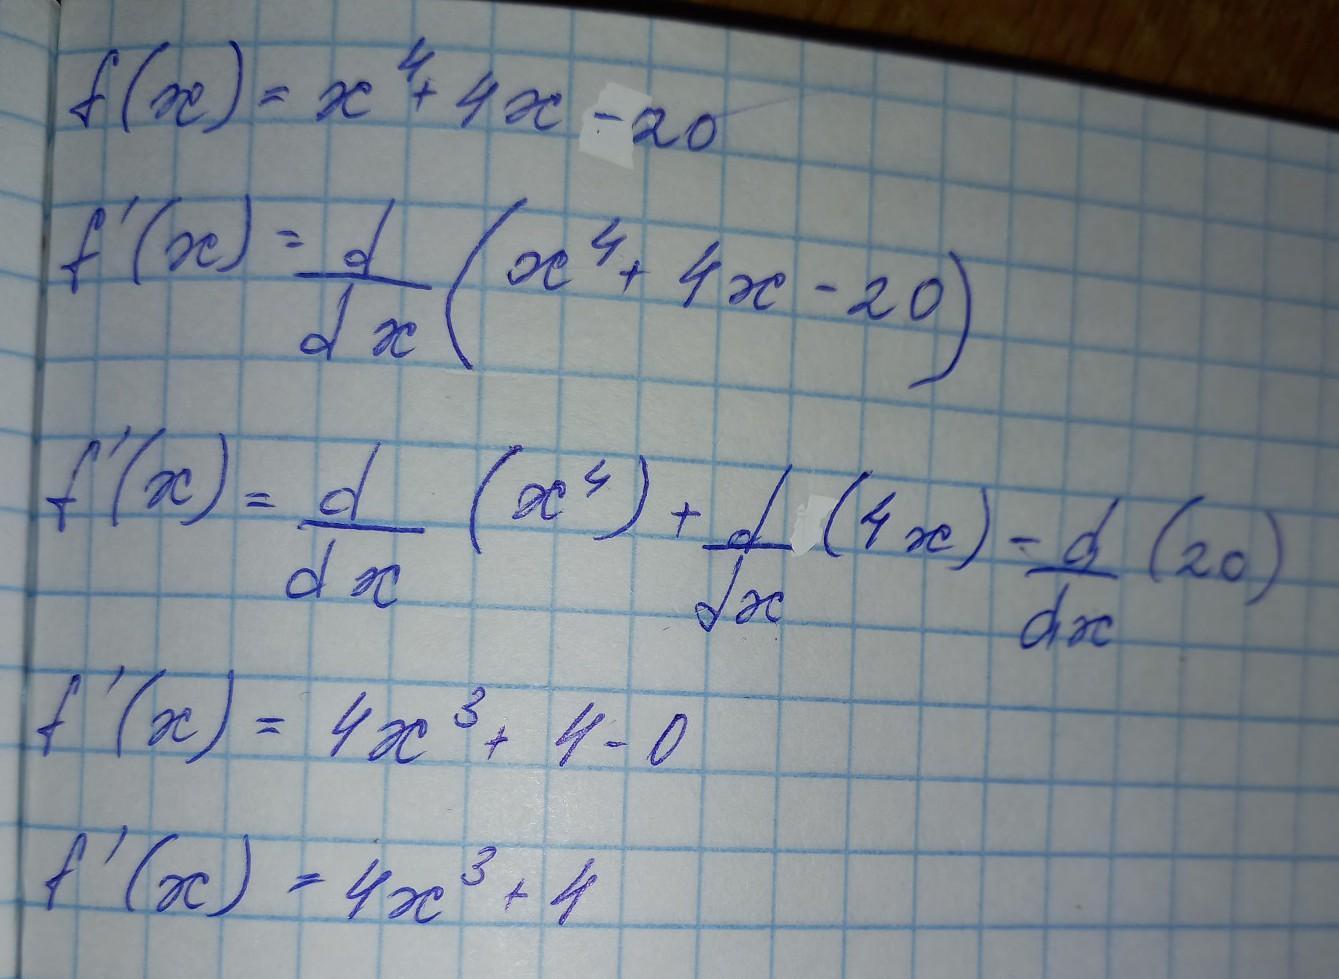 f(x) = x⁴ + 4x - 20
f'(x) = d/dx (x⁴ + 4x - 20)
f'(x) = d/dx (x⁴) + d/dx (4x) - d/dx (20)
f'(x) = 4x³ + 4 - 0
f'(x) = 4x³ + 4